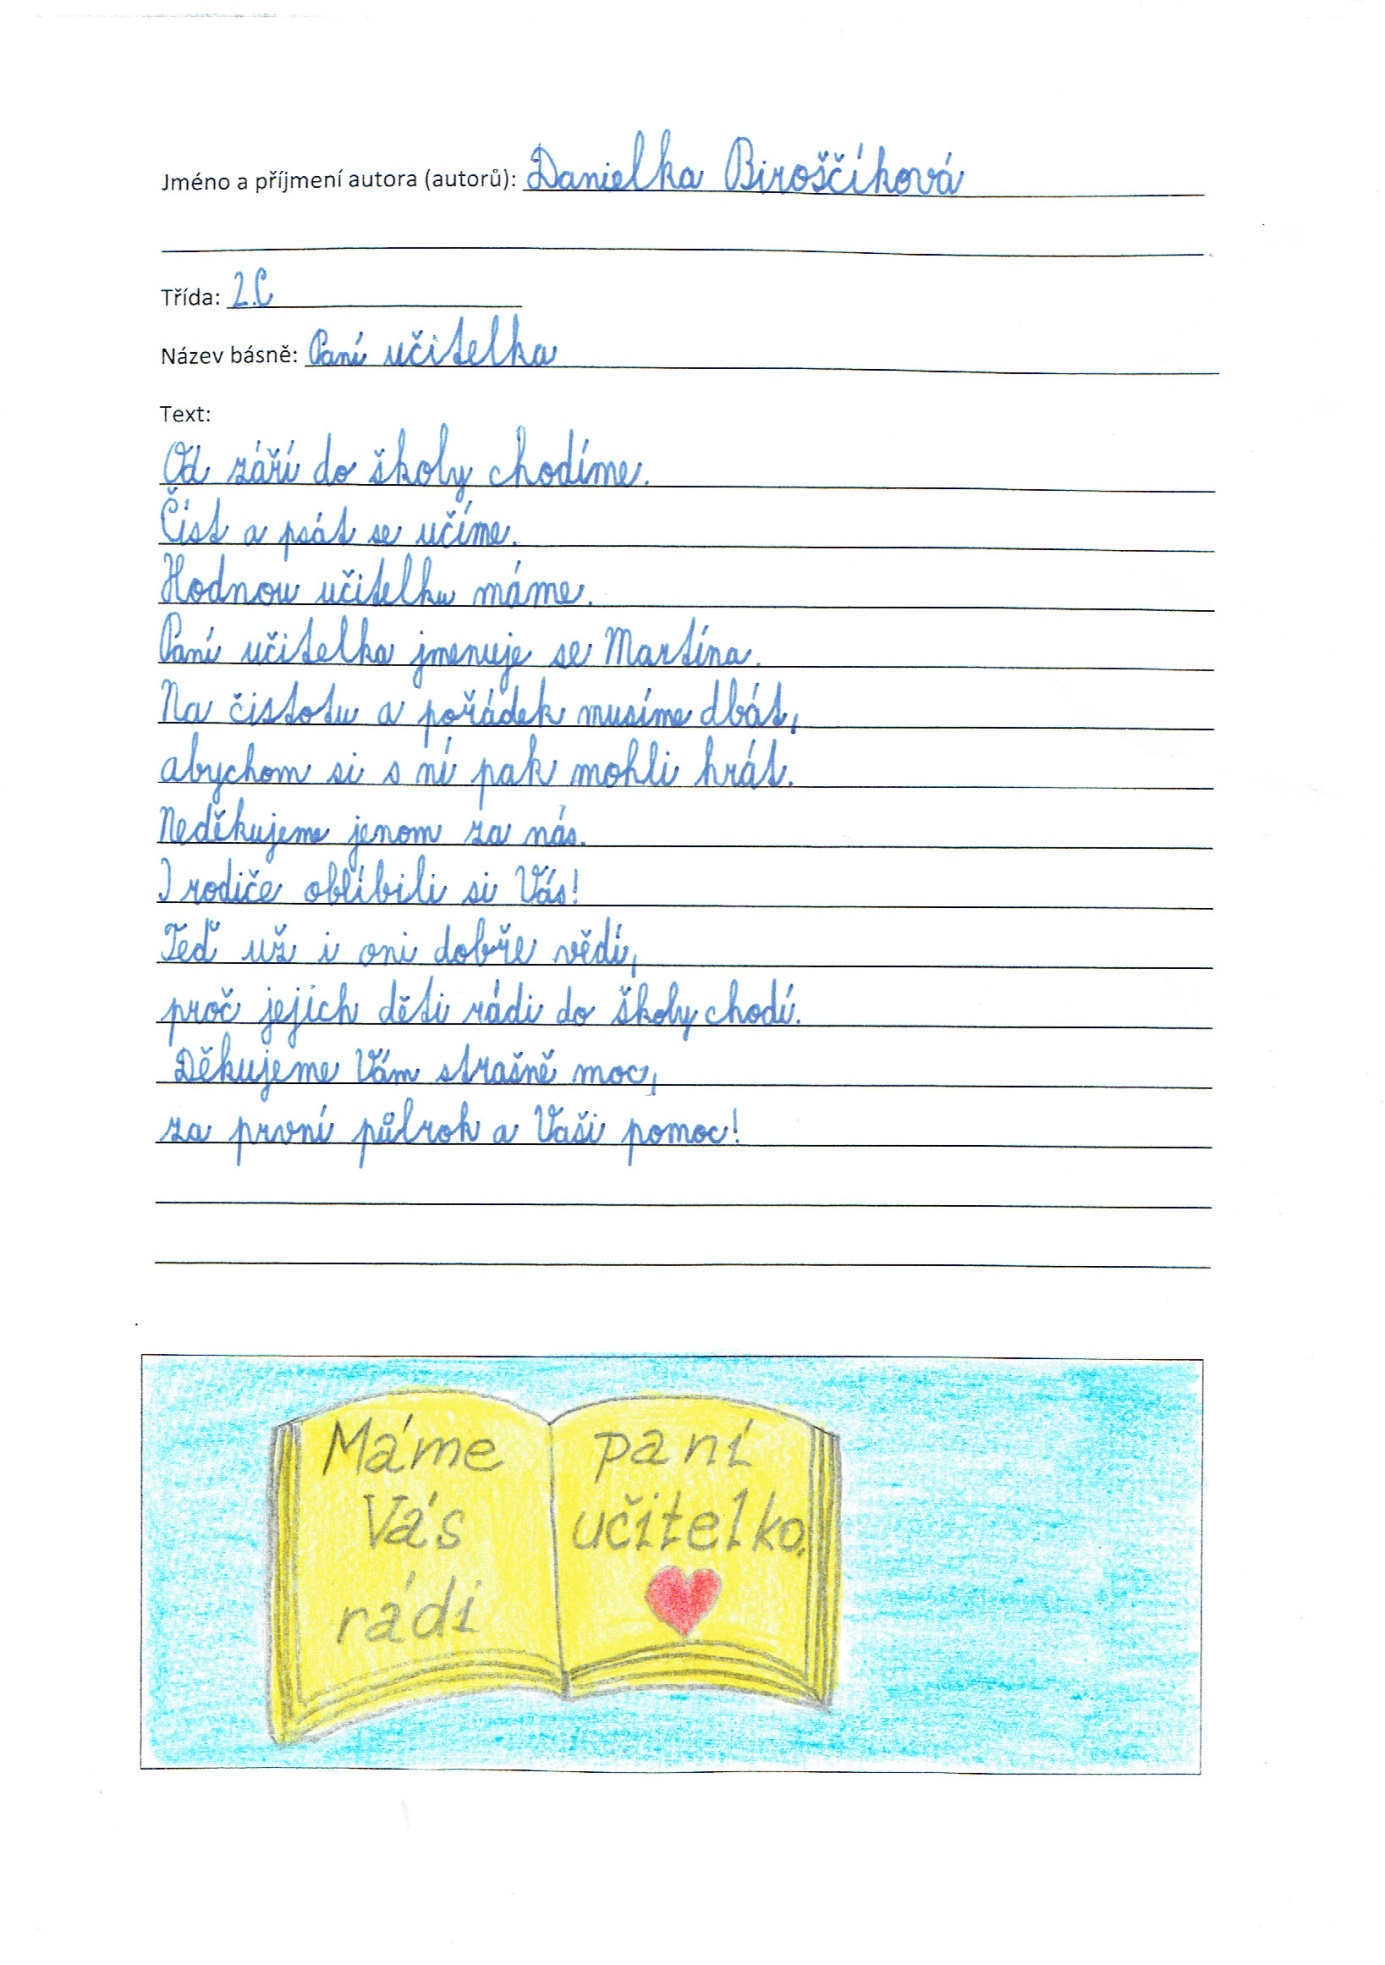 Jméno a příjmení autora (autorů): Danielka Biroščíková
Třída: 2.C
Název básně: Paní učitelka
Text:
Od září do školy chodíme.
Číst a psát se učíme.
Hodnou učitelku máme.
Paní učitelka jmenuje se Martína.
Na čistotu a pořádek musíme dbát,
abychom si s ní pak mohli hrát.
Neděkujeme jenom za nás.
I rodiče oblíbili si Vás!
Teď už i oni dobře vědí,
proč jejich děti rádi do školy chodí.
Děkujeme Vám strašně moc,
za první půlrok a Vaši pomoc!
Máme paní
Vás učitelko.
rádi